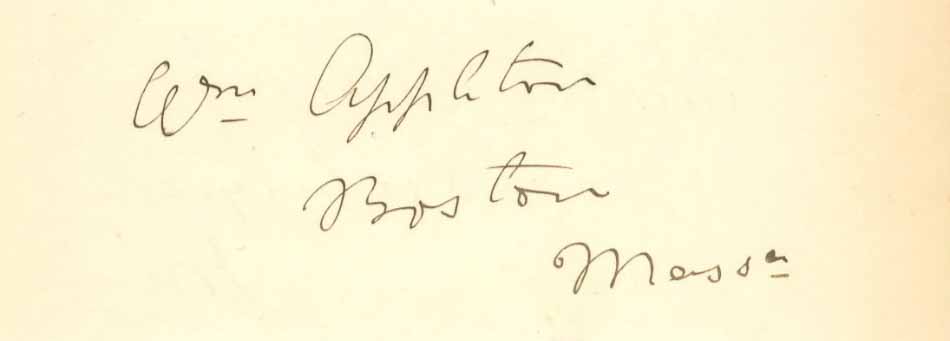 Wm Appleton
Boston
Massa